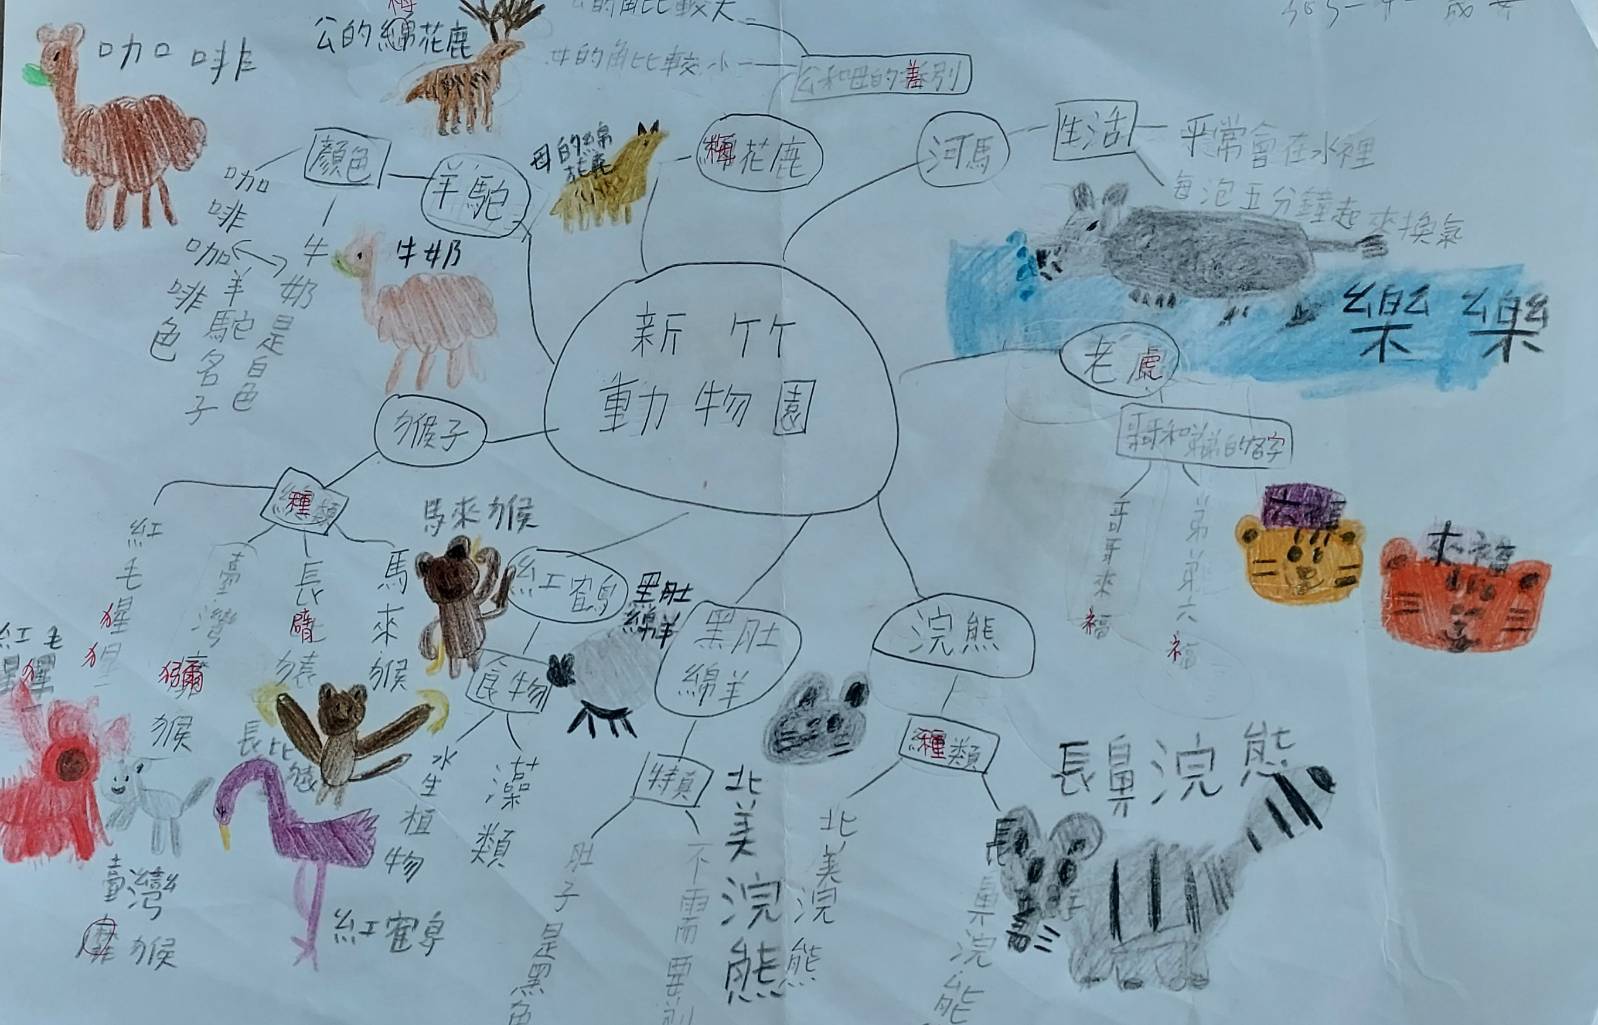 咖啡
公的綿花鹿
梅
母的角比較小
公和母的差別
顏色
羊駝
母的綿花鹿
梅花鹿
河馬
生活
平常會在水裡
每泡五分鐘起來換氣
咖啡
咖啡色
羊駝名子
牛奶是白色
牛奶
樂樂
新竹
動物園
老虎
哥哥和弟弟的名字
哥哥來福
弟弟六福
六福
來福
猴子
種類
紅毛猩猩
臺灣獼猴
長臂猿
馬來猴
馬來猴
紅毛猩猩
長比猿
臺灣
猴
紅鶴
食物
水生植物
藻類
紅鶴
黑肚綿羊
黑肚
綿羊
特真
肚子是黑色
不需要別
浣熊
種類
北美浣熊
長鼻浣熊
北美浣熊
長鼻浣熊